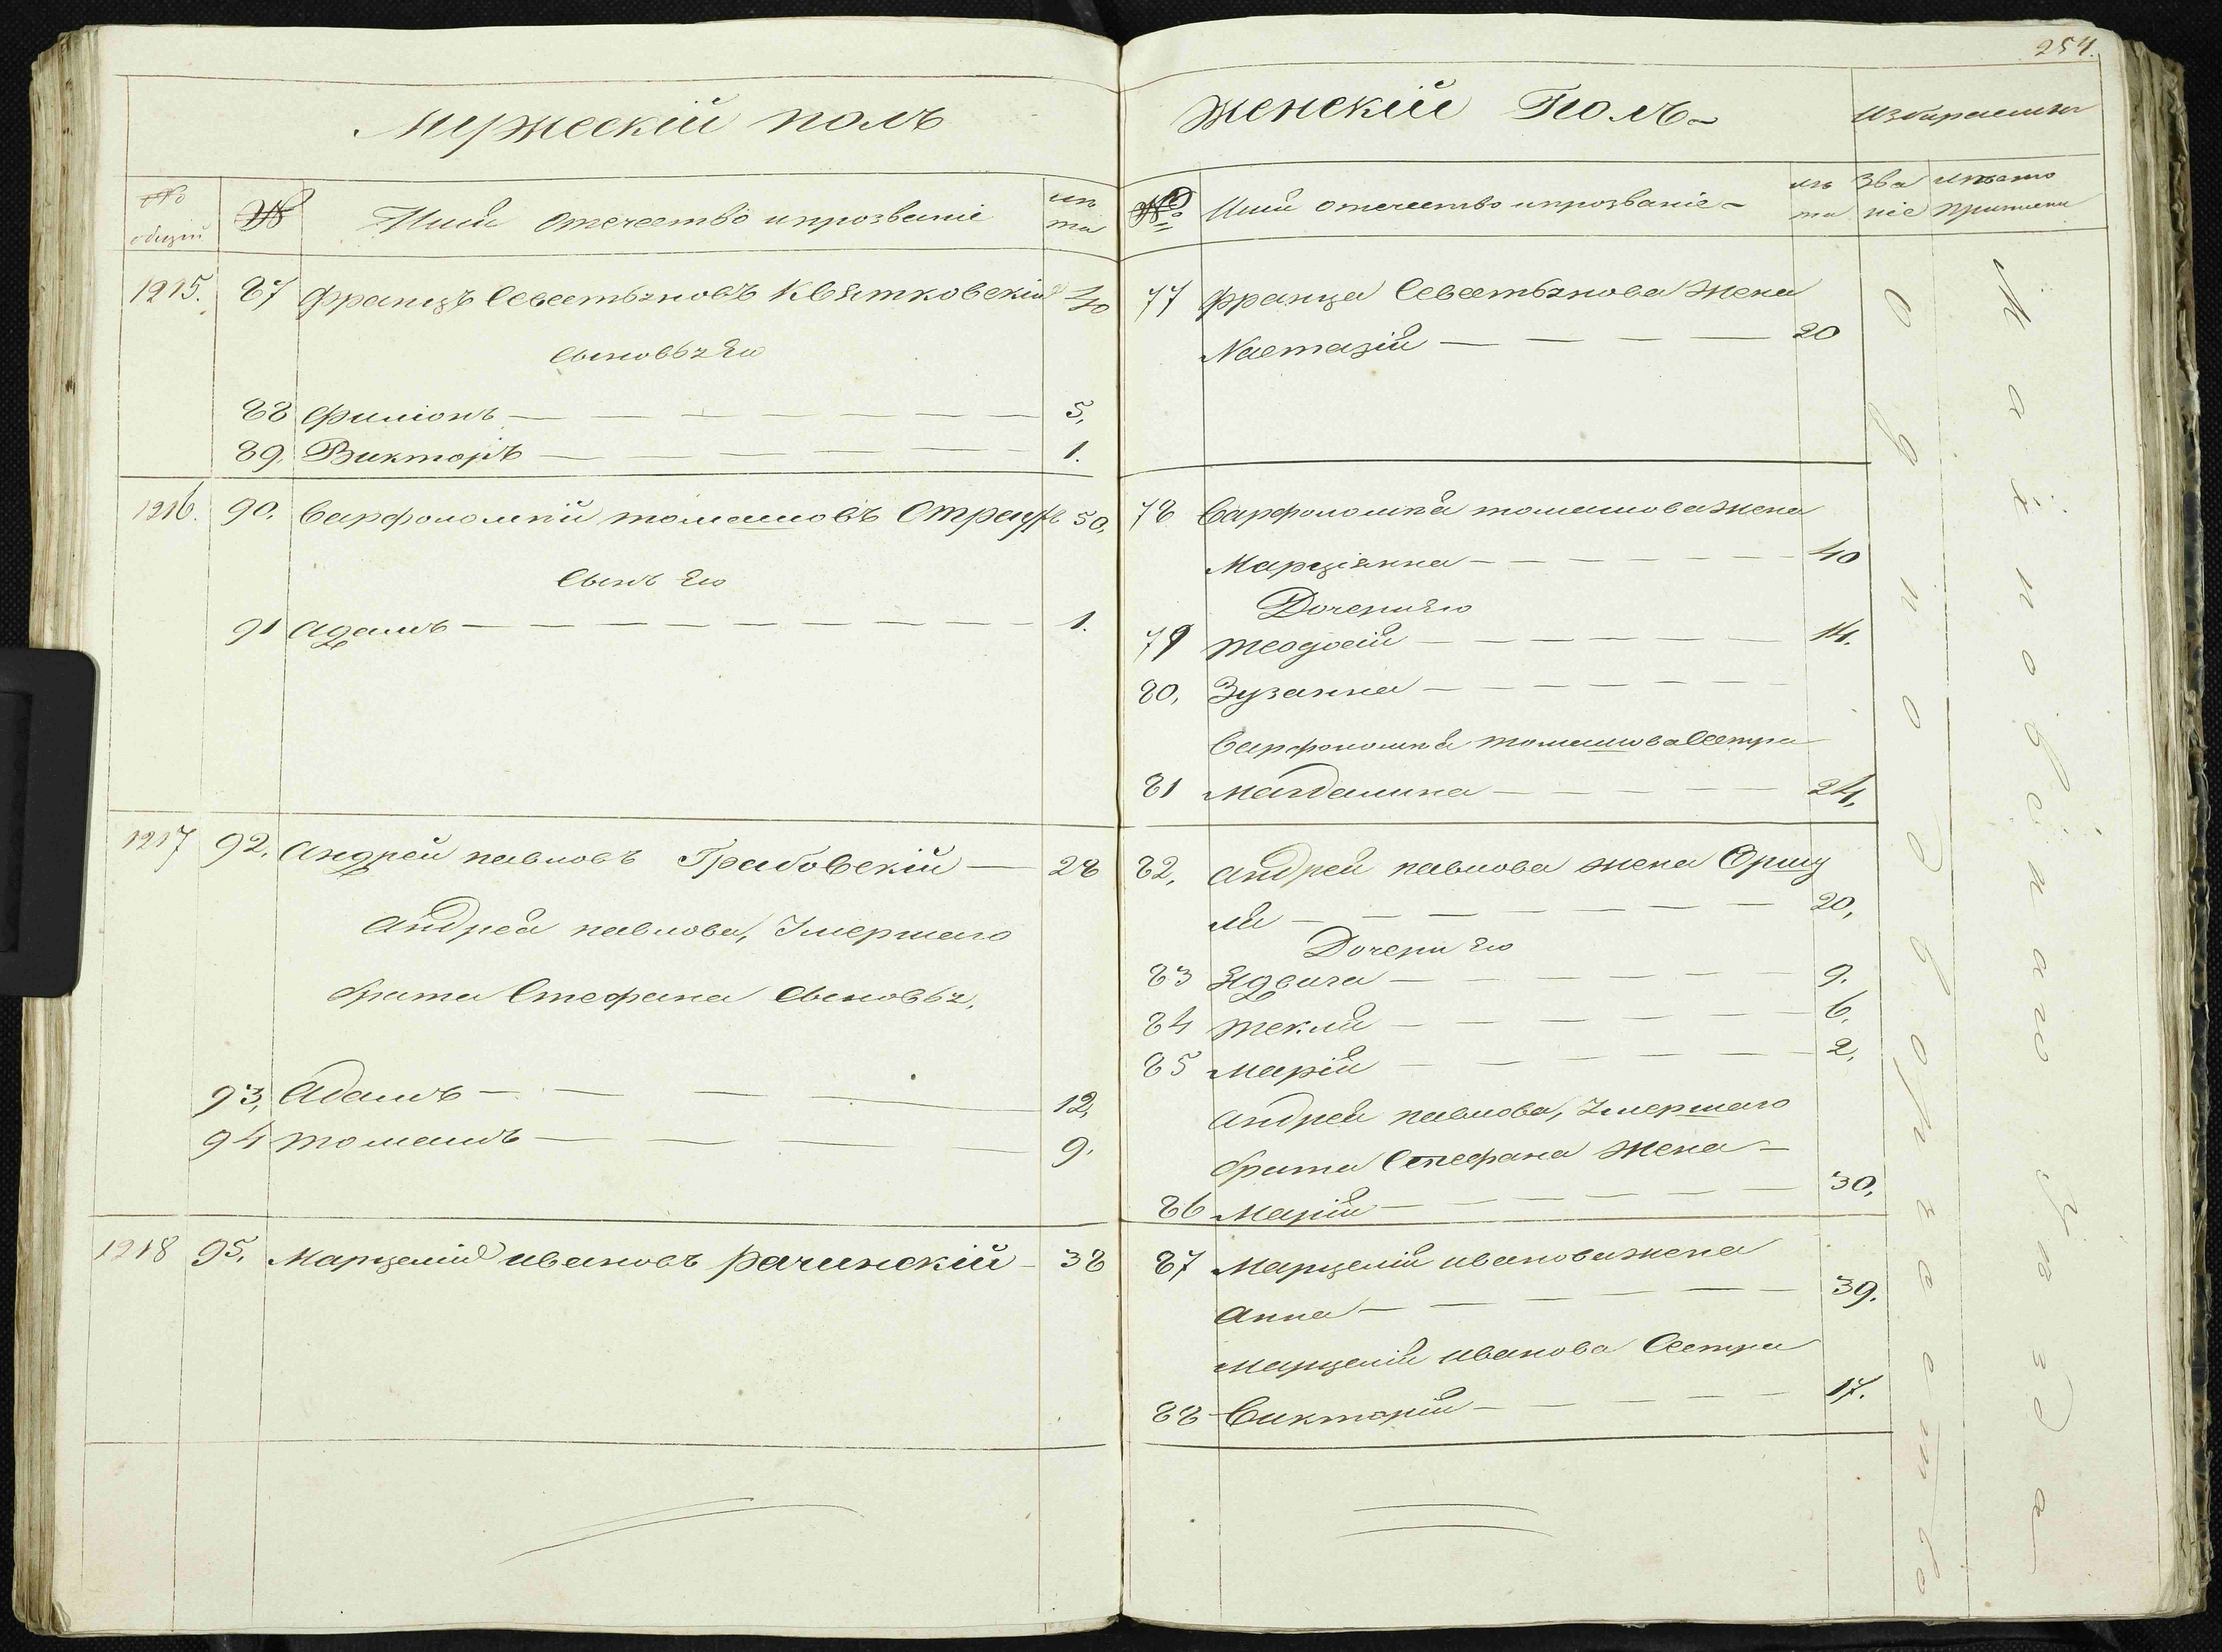 254.
Мужескій полъ
№ общій
№
Имя отечество и прозваніе
лѣта
1215. 87 Францъ Севестьяновъ Квятковскій 40
Сыновья Его
88 Филіонъ — 5,
89, Викторъ — 1.
1216. 90. Варфоломѣй томашовъ 50,
Сынъ Его
91 Адамъ — 1.
1217 92. Андрей павловъ Грабовскій — 28
Андрея павлова, Умершаго
брата Стефана Сыновья,
93, Адамъ — 12,
94 томашъ — 9.
1218 95, Марцелій ивановъ рачинскій — 38
женскій Полъ
№
Имя отечество и прозваніе
лѣта
Званіе
мѣсто
77 Франца Севестьянова Жена
Настазія — 20
78 Варфоломѣя томашова жена
Марціянна — 40
Дочери Его
79 теодосія — 14.
80, Зузанна —
Варфоломѣя томашова Сестра
81 Магдалина — 24,
82, Андрея павлова жена Оршу
ля — 20,
Дочери Его
83 Ядвига — 9.
84 текля — 6,
85 Марія — 2,
Андрея павлова, Умершаго
брата Стефана Жена
86 Марія — 30,
87 Марцелія иванова жена
Анна — 39.
Марцелія иванова Сестра
88 Викторія — 17.
Однодворческаго
уѣзда